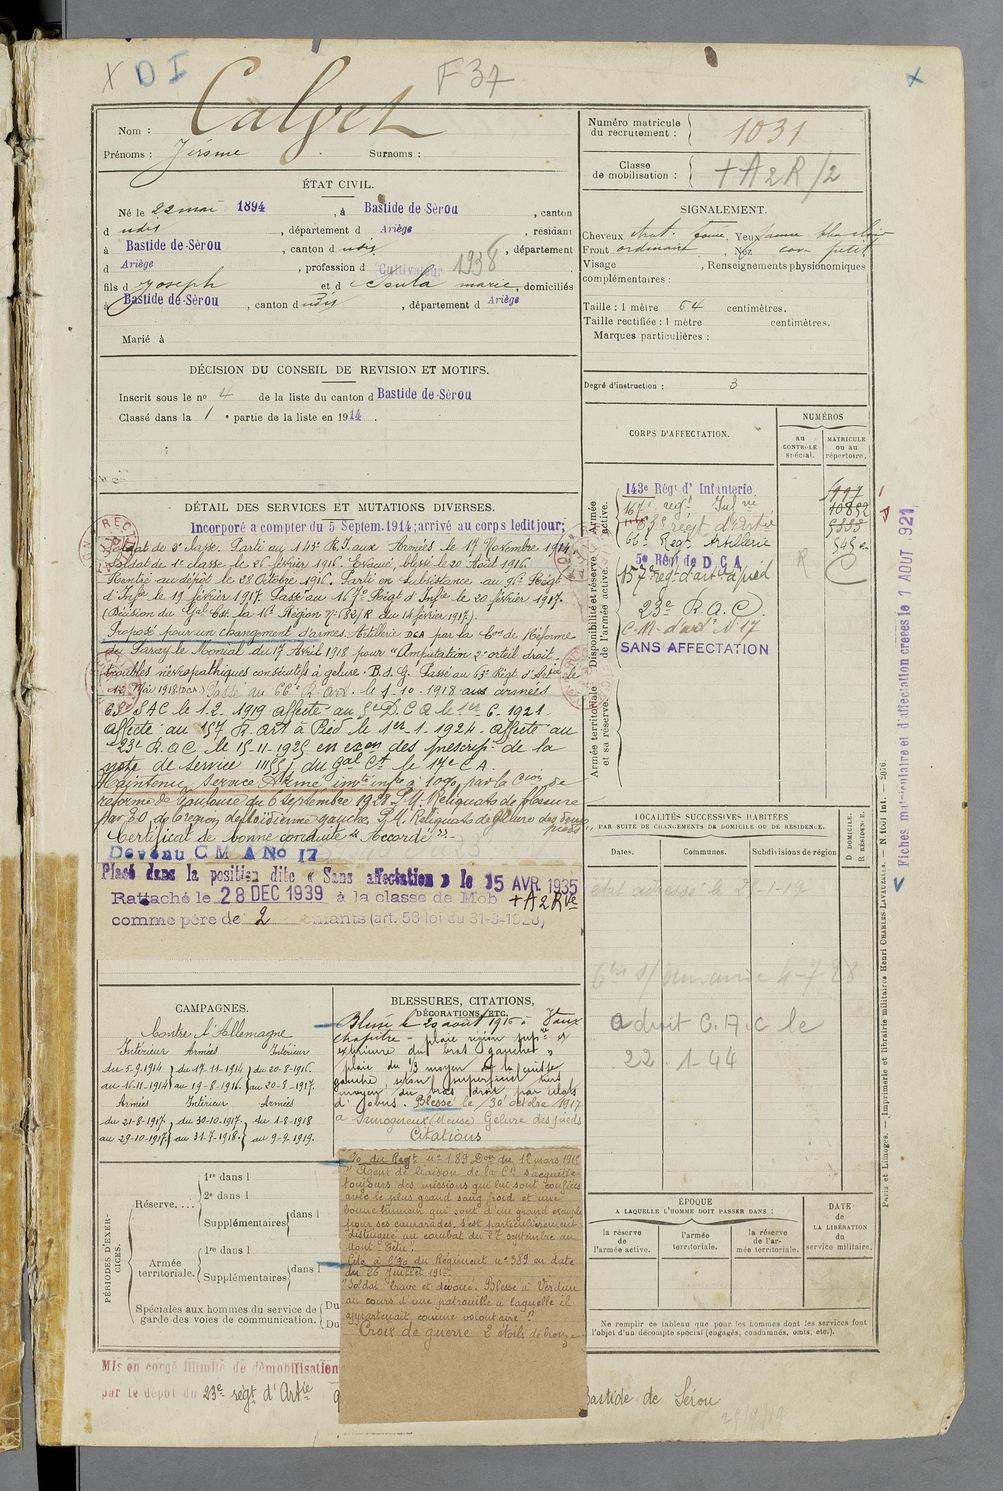 X D I
F 37
Calvet
Nom :
Prénoms : Jérôme Surnoms :
Numéro matricule du recrutement : 1031
Classe de mobilisation : + A 2 R /2
ÉTAT CIVIL.
Né le 22 mai 1894, à Bastide de Sèrou, canton
d udis, département d Ariège, résidant
à Bastide de Sèrou, canton d udis, département
d Ariège, profession d Cultivateur 1938
fils d Joseph et d Soula marie, domiciliés
à Bastide de Sèrou, canton d udis, département d Ariège
Marié à
SIGNALEMENT.
Cheveux chat. foncé, Yeux
Front ordinaire, Nez
Visage , Renseignements physionomiques
complémentaires :
Taille : 1 mètre 64 centimètres.
Taille rectifiée : 1 mètre centimètres.
Marques particulières :
Degré d'instruction : 3
DÉCISION DU CONSEIL DE REVISION ET MOTIFS.
Inscrit sous le nº 4 de la liste du canton d Bastide de Sèrou
Classé dans la 1e partie de la liste en 1914.
CORPS D'AFFECTATION.
NUMÉROS
AU CONTROLE spécial.
MATRICULE OU AU répertoire.
Armée active.
Disponibilité et réserve de l'armée active.
Armée territoriale et sa réserve.
143e Régt d' Infanterie
167e regt Infrie
63e régt d'Artie
66e Regt Artillerie
5e Régt de D C A
157e regt d'art à pied
23e R.A.C.
C.M. d'art N 17
SANS AFFECTATION
DÉTAIL DES SERVICES ET MUTATIONS DIVERSES.
Incorporé a compter du 5 Septem. 1914; arrivé au corps ledit jour;
Soldat de 2e classe. Parti au 143e R.I. aux Armées le 17 Novembre 1914
Soldat de 1e classe le 26 février 1916. Evacué, blessé le 20 Août 1916.
Rentré au dépôt le 28 Octobre 1916. Parti en subsistance au 96e Régt
d'Infie le 19 février 1917. Passé au 167e Régt d'Infie le 20 février 1917.
(Décision du Gal Cdt. la 16e Région nº 182/R du 14 février 1917).
Proposé pour un changement d'armes Artillerie DCA par la Con de Réforme
de Paray le Monial du 17 Avril 1918 pour "Amputation 2e orteil droit
troubles névropathiques consécutifs à gelure. B.d.G. Passé au 63e Régt d'Artie le
12 Mai 1918 (DCA) Passé au 66e R. Art. le 1-10-1918 aux armées
63e SAC le 1-2-1919 affecté au 5e D C A le 1er-6-1921.
affecté au 157 R. art à Pied le 1er-1-1924 - affecté au
23e R.A.C. le 15-11-1925 en exon des prescrip. de la
note de service du Gal Ct. le 17e C A.
Maintenu service Armé par la Cion de
réforme de Toulouse du 6 septembre 1928 S.M. Reliquats de blessure
par E.O. de la région deltoïdienne gauche, S.M. Reliquats de gelure des deux pieds
Certificat de bonne conduite "Accordé".
Devenu C M A No 17
Placé dans la position dite « Sans affectation » le 15 AVR. 1935
Rattaché le 28 DEC 1939 à la classe de Mob + A 2 Rve
comme père de 2 enfants (art. 58 loi du 31-3-1928)
LOCALITÉS SUCCESSIVES HABITÉES
PAR SUITE DE CHANGEMENTS DE DOMICILE OU DE RÉSIDENCE.
Dates. Communes. Subdivisions de région
D DOMICILE.
R RÉSIDENCE.
adroit C.A.C le
22. 1-44
CAMPAGNES.
Contre l'Allemagne
Intérieur Armées Intérieur
du 5-9-1914 du 17-11-1914 du 20-8-1916.
au 16-11-1914 au 19-8-1916. au 20-8-1917.
Armées Intérieur Armées
du 21-8-1917 du 30-10-1917. du 1-8-1918
au 29-10-1917 au 31-7-1918. au 9-9-1919.
BLESSURES, CITATIONS, DÉCORATIONS, ETC.
Blessé le 20 août 1916 à Vaux
chapitre - plaie région
extérieure du bras gauche
plaie du 1/3 moyen de la cuisse
gauche, séton superficiel tiers
moyen du bras droit par éclats
d'obus. Blessé le 30 octobre 1917
à Samogneux (Meuse) Gelure des pieds
Citations
O/o du Regt nº 189 Don du 12 mars 1915
"Agent de liaison de la Cie s'acquitte
toujours des missions qui lui sont confiées
avec le plus grand sang froid et une
bonne humeur qui sont d'un grand exemple
pour ses camarades. S'est particulièrement
distingué au combat du 27 septembre au
Mont Têtu."
Cité à l'O/o du Régiment nº 389 en date
du 26 Juillet 1918.
"Soldat brave et dévoué. Blessé à Verdun
au cours d'une patrouille à laquelle il
appartenait comme volontaire."
Croix de guerre 2 étoiles de bronze
PÉRIODES D'EXERCICES.
Réserve.... 1re dans l
2e dans l
Supplémentaires dans l
Armée territoriale. 1re dans l
Supplémentaires dans l
Spéciales aux hommes du service de garde des voies de communication. Du
Du
ÉPOQUE
A LAQUELLE L'HOMME DOIT PASSER DANS :
la réserve de l'armée active.
l'armée territoriale.
la réserve de l'armée territoriale.
DATE de LA LIBÉRATION du service militaire.
Ne remplir ce tableau que pour les hommes dont les services font
l'objet d'un décompte spécial (engagés, condamnés, omis, etc.).
Mis en congé illimité de démobilisation
par le dépôt du 23e régt d'Artie
Bastide de Sérou
Fiches matriculaire et d'affectation créées le 1 AOUT 1921
Paris et Limoges. — Imprimerie et librairie militaires Henri CHARLES-LAVAUZELLE.